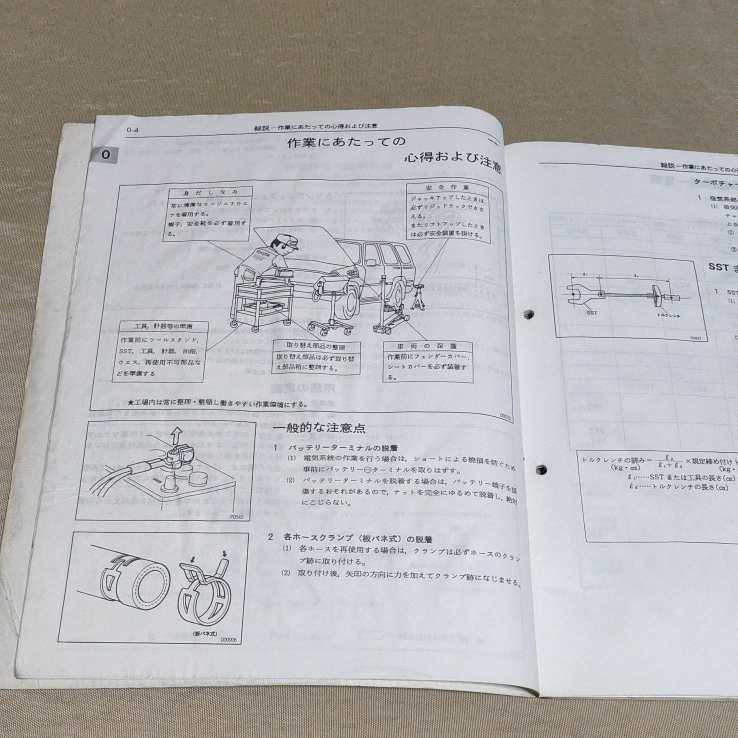 0-4
総説－作業にあたっての心得および注意
0
作業にあたっての
心得および注意
身だしなみ
常に清潔な
を着用する。
帽子、安全靴を必ず着用す
る。
安全作業
ジャッキアップしたときは
必ずリジッドラックで支
える。
またリフトアップしたとき
は必ず安全装置を掛ける。
工具，計器等の準備
作業前にツールスタンド，
SST，工具，計器，油脂，
ウエス，再使用不可部品な
どを準備する
取り替え部品の整理
取り替え部品は必ず取り替
え部品箱に整理する。
車両の保護
作業前にフェンダーカバー，
シートカバーを必ず装着す
る。
★工場内は常に整理・整頓し働きやすい作業環境にする。
一般的な注意点
1 バッテリーターミナルの脱着
(1) 電気系統の作業を行う場合は，ショートによる焼損を防ぐため
事前にバッテリー⊖ターミナルを取りはずす。
(2) バッテリーターミナルを脱着する場合は，バッテリー端子を損
傷するおそれがあるので，ナットを完全にゆるめて脱着し，絶対
にこじらない。
2 各ホースクランプ（板バネ式）の脱着
(1) 各ホースを再使用する場合は，クランプは必ずホースのクラン
プ跡に取り付ける。
(2) 取り付け後，矢印の方向に力を加えてクランプ跡になじませる。
(板バネ式)
総説－作業にあたっての心得
ターボチャー
1
(1)
②
③
SST
1 SST
(1)
SST
トルクレンチ
トルクレンチの読み＝ℓ₂/ℓ₁＋ℓ₂×規定締め付けト
(kg・cm) (kg・
ℓ₁……SSTまたは工具の長さ(cm)
ℓ₂……トルクレンチの長さ(cm)